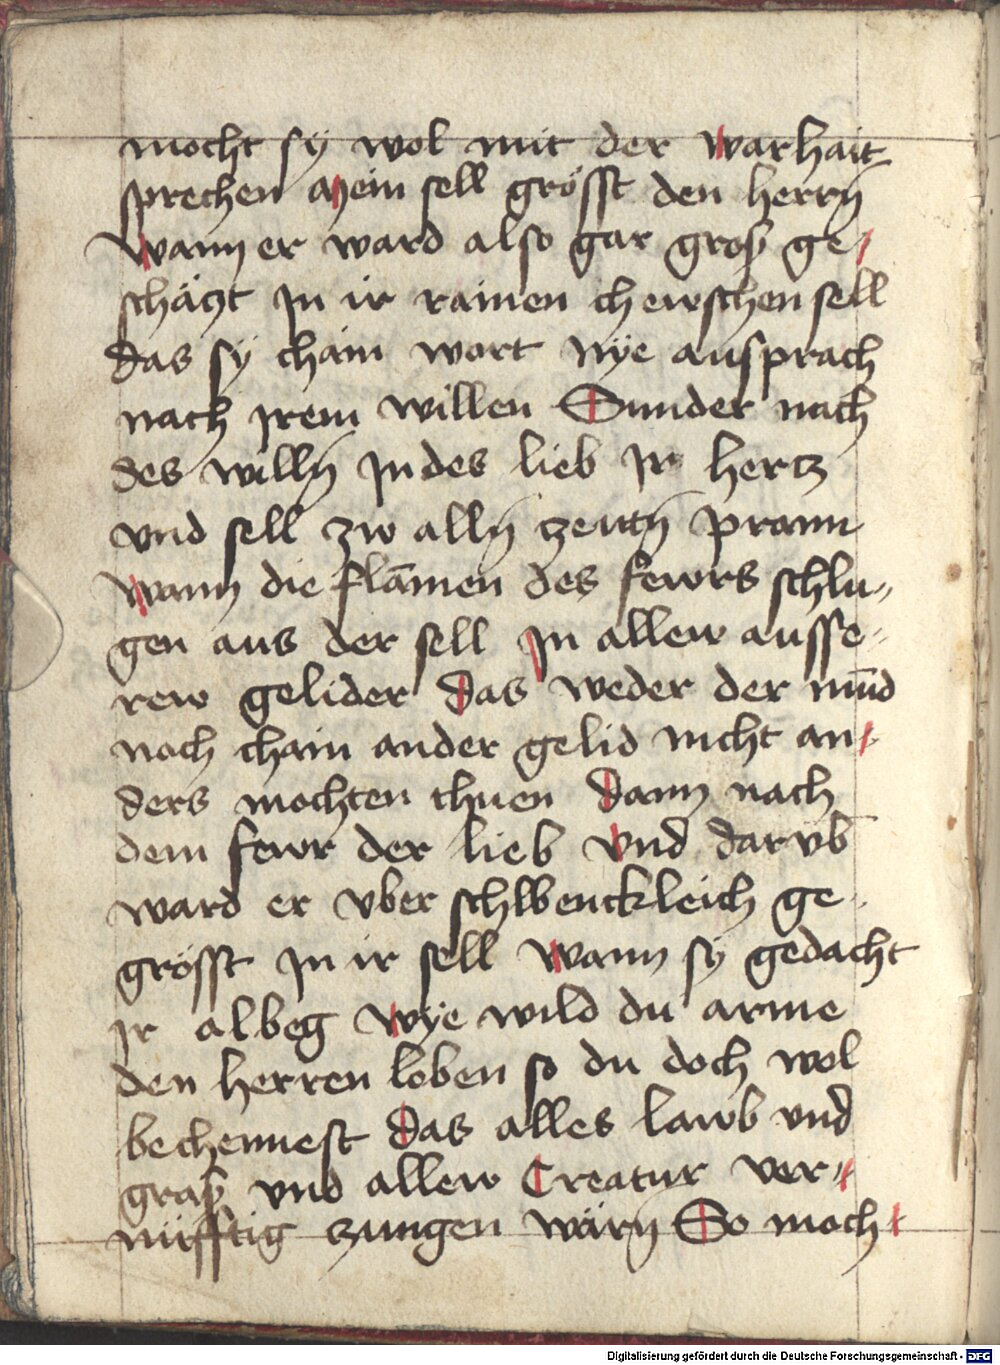 mocht sÿ wol mit der warhait
sprechen Mein sell grösst den herrn̄
Wann er ward also gar groß ge-
schäczt Jn ir rainen chewschen sell
das sÿ chain wort nÿe aussprach
nach jrem willen Sunder nach
des willn̄ Jn des lieb Jr hertz
vnd sell zw alln̄ zeittn̄ prann
Wann die flām̄en des fewrs schlu-
gen aus der sell Jn allew ausse-
rew gelider das weder der mūd
noch chain ander gelid nicht an-
ders mochten thuen dann nach
dem fewr der lieb vnd dar vb̄
ward er vber schwenckleich ge-
grösst Jn ir sell Wann sÿ gedacht
Jr albeg Wÿe wild du arme
den herren loben so du doch wol
bechennest das alles lawb vnd
graß vnd allew Creatur ver-
nüfftig zungen wärn̄ So moch-
Digitalisierung gefördert durch die Deutsche Forschungsgemeinschaft - DFG